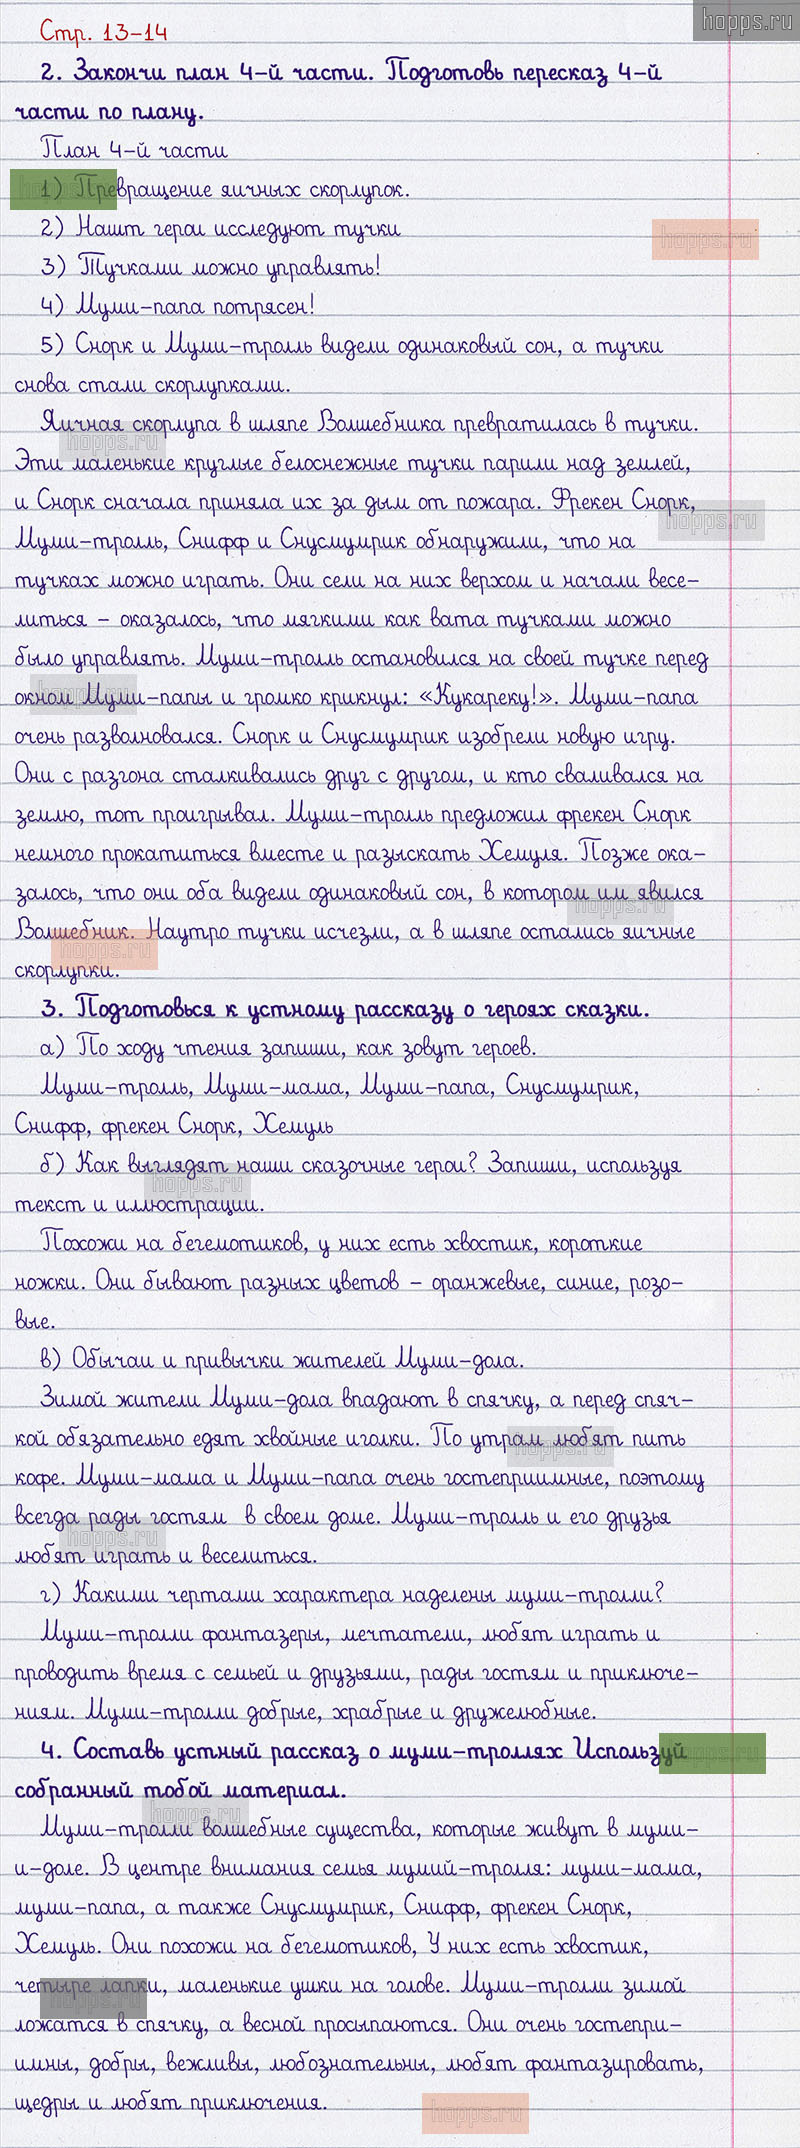 hopps.ru
Стр. 13-14
2. Закончи план 4-й части. Подготовь пересказ 4-й
части по плану.
План 4-й части
1) Превращение яичных скорлупок.
2) Нашт герои исследуют тучки
hopps.ru
3) Тучками можно управлять!
4) Муми-папа потрясен!
5) Снорк и Муми-тролль видели одинаковый сон, а тучки
снова стали скорлупками.
Яичная скорлупа в шляпе Волшебника превратилась в тучки.
hopps.ru
Эти маленькие круглые белоснежные тучки парили над землей,
и Снорк сначала приняла их за дым от пожара. Фрекен Снорк,
hopps.ru
Муми-тролль, Снифф и Снусмумрик обнаружили, что на
тучках можно играть. Они сели на них верхом и начали весе-
литься - оказалось, что мягкими как вата тучками можно
было управлять. Муми-тролль остановился на своей тучке перед
окном Муми-папы и громко крикнул: «Кукареку!». Муми-папа
hopps.ru
очень разволновался. Снорк и Снусмумрик изобрели новую игру.
Они с разгона сталкивались друг с другом, и кто сваливался на
землю, тот проигрывал. Муми-тролль предложил фрекен Снорк
немного прокатиться вместе и разыскать Хемуля. Позже ока-
залось, что они оба видели одинаковый сон, в котором им явился
hopps.ru
Волшебник. Наутро тучки исчезли, а в шляпе остались яичные
hopps.ru
скорлупки.
3. Подготовься к устному рассказу о героях сказки.
а) По ходу чтения запиши, как зовут героев.
Муми-тролль, Муми-мама, Муми-папа, Снусмумрик,
Снифф, фрекен Снорк, Хемуль
б) Как выглядят наши сказочные герои? Запиши, используя
hopps.ru
текст и иллюстрации.
Похожи на бегемотиков, у них есть хвостик, короткие
ножки. Они бывают разных цветов - оранжевые, синие, розо-
вые.
в) Обычаи и привычки жителей Муми-дола.
Зимой жители Муми-дола впадают в спячку, а перед спяч-
кой обязательно едят хвойные иголки. По утрам любят пить
hopps.ru
кофе. Муми-мама и Муми-папа очень гостеприимные, поэтому
всегда рады гостям в своем доме. Муми-тролль и его друзья
hopps.ru
любят играть и веселиться.
г) Какими чертами характера наделены муми-тролли?
Муми-тролли фантазеры, мечтатели, любят играть и
проводить время с семьей и друзьями, рады гостям и приключе-
ниям. Муми-тролли добрые, храбрые и дружелюбные.
4. Составь устный рассказ о муми-троллях Используй
hopps.ru
собранный тобой материал.
hopps.ru
Муми-тролли волшебные существа, которые живут в муми-
и-доле. В центре внимания семья мумий-тролля: муми-мама,
муми-папа, а также Снусмумрик, Снифф, фрекен Снорк,
Хемуль. Они похожи на бегемотиков, У них есть хвостик,
четыре лапки, маленькие ушки на голове. Муми-тролли зимой
hopps.ru
ложатся в спячку, а весной просыпаются. Они очень гостепри-
имны, добры, вежливы, любознательны, любят фантазировать,
щедры и любят приключения.
hopps.ru